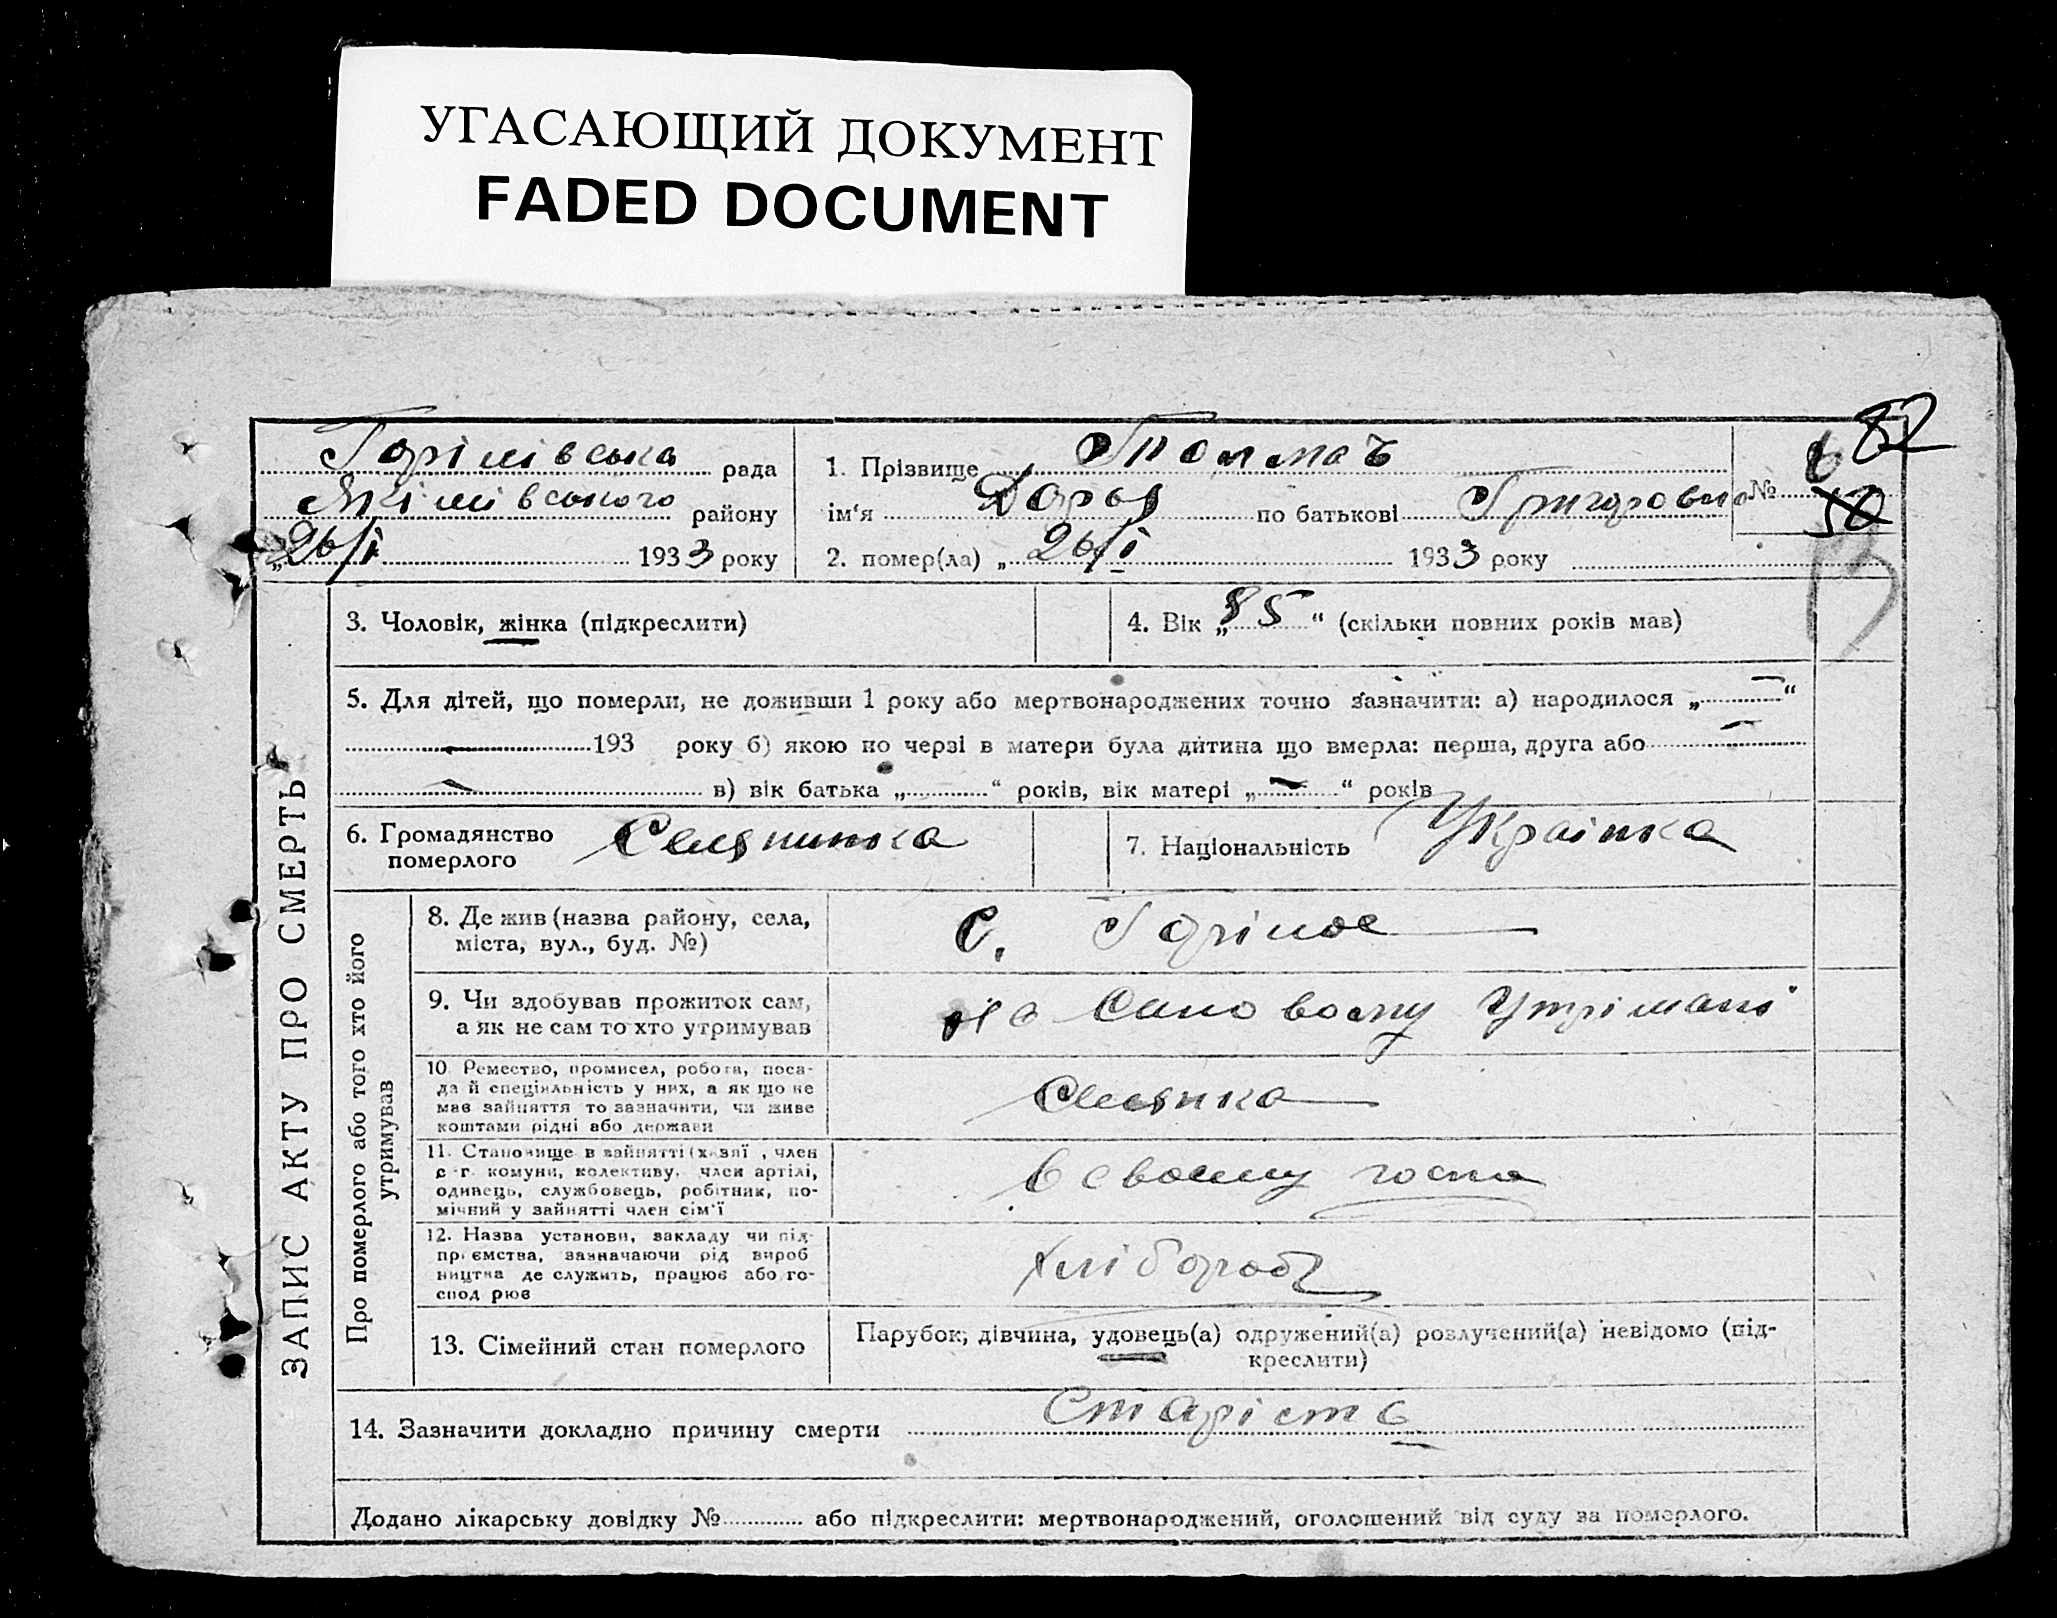 УГАСАЮЩИЙ ДОКУМЕНТ
FADED DOCUMENT
82
Горілівська рада
Якімівського району
„26/I 1933 року
1. Прізвище
ім'я Дарья по батькові Григоровна
2. помер(ла) „26/I 1933 року
№ 6
50
ЗАПИС АКТУ ПРО СМЕРТЬ
3. Чоловік, жінка (підкреслити)
4. Вік „85“ (скільки повних років мав)
5. Для дітей, що померли, не доживши 1 року або мертвонароджених точно зазначити: а) народилося „—“
— 193 року б) якою по черзі в матери була дитина що вмерла: перша, друга або —
— в) вік батька „ “ років, вік матері „—“ років
6. Громадянство
померлого Селянинка
7. Національність Українка
Про померлого або того хто його
утримував
8. Де жив (назва району, села,
міста, вул., буд. №)
с. Горілое
9. Чи здобував прожиток сам,
а як не сам то хто утримував
на Синовому Утрімані
10. Ремество, промисел, робота, поса-
да й спеціяльність у них, а як що не
мав зайняття то зазначити, чи живе
коштами рідні або держави
Селянка
11. Становище в зайнятті (хазяї , член
с.-г. комуни, колективу, член артілі,
одинець, службовець, робітник, по-
мічний у зайнятті член сім'ї
в своему госпо
12. Назва установи, закладу чи під-
приємства, зазначаючи рід вироб
ництва де служить, працює або го-
спод рює
Хлібороб
13. Сімейний стан померлого
Парубок, дівчина, удовець(а) одружений(а) розлучений(а) невідомо (під-
креслити)
14. Зазначити докладно причину смерти Старість
Додано лікарську довідку № або підкреслити: мертвонароджений, оголошений від суду за померлого.